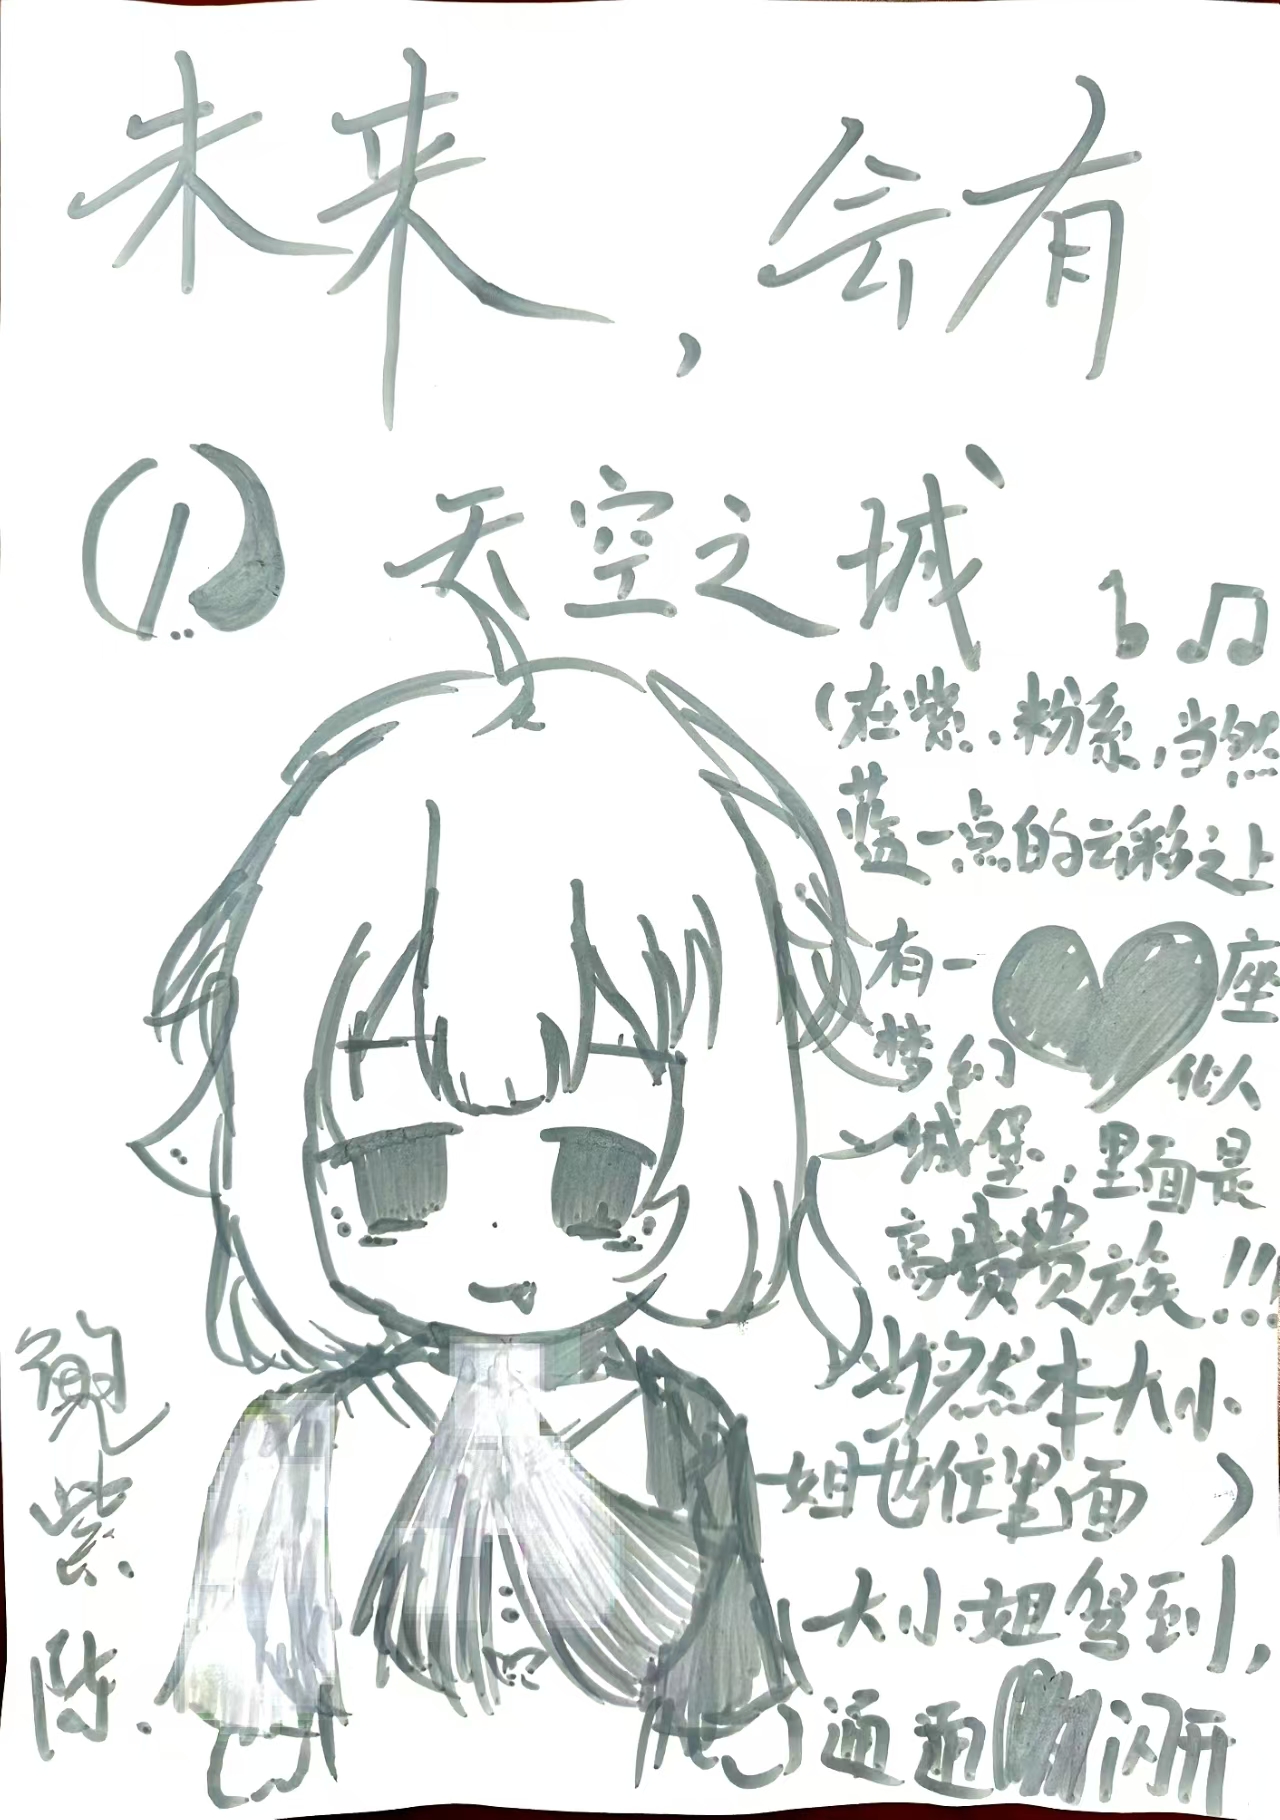 未来，会有
1. 天空之城
（在紫、粉系，当然
蓝一点的云彩之上
有一座
梦幻似
城堡，里面是
高贵贵族!!!
当然本大小
姐也住里面）
大小姐驾到，
通通闪开
紫
陈.